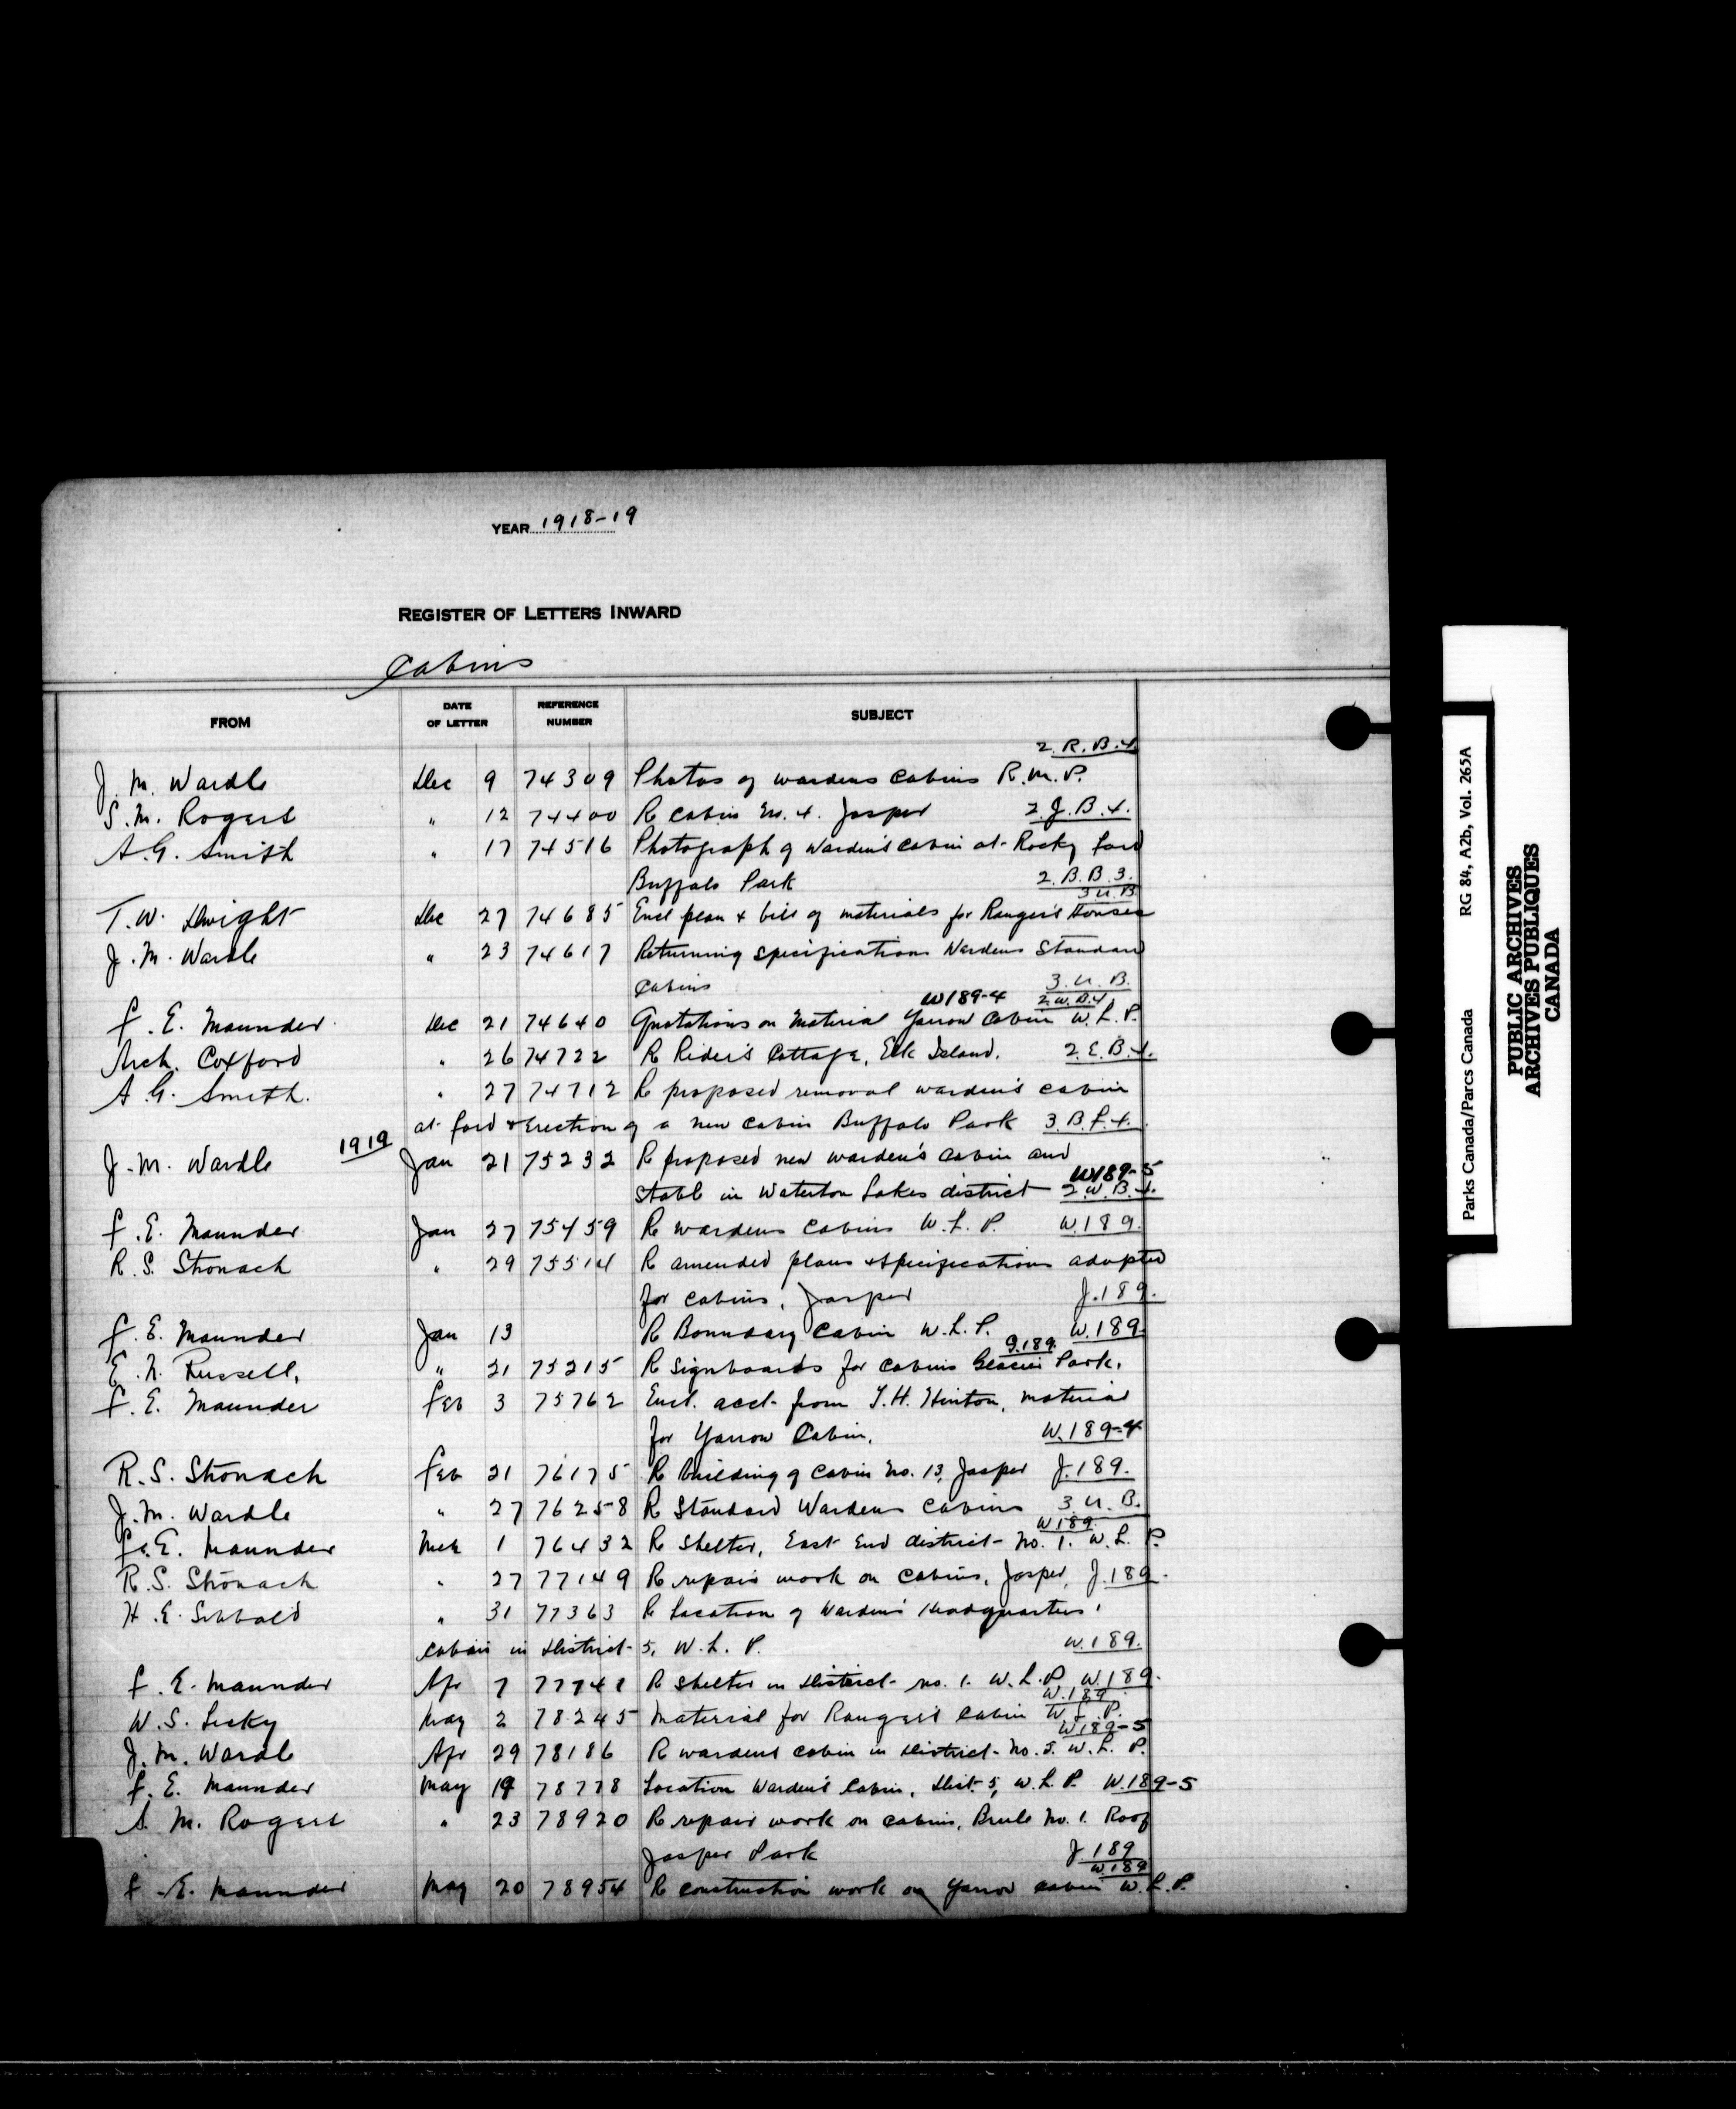 YEAR 1918-19
REGISTER OF LETTERS INWARD
Cabins
FROM DATE OF LETTER REFERENCE NUMBER SUBJECT
2. R. B. 4
J. M. Wardle Dec 9 74309 Photos of wardens cabins R.M.P.
S. M. Rogers " 12 74400 R cabin No. 4. Jasper 2. J. B. 4.
A. G. Smith " 17 74516 Photograph of Warden's cabin at Rocky ford
Buffalo Park 2. B. B. 3.
3 U. B
T. W. Dwight Dec 27 74685 Encl plan & bill of materials for Ranger's Houses
J. M. Wardle " 23 74617 Returning specifications Wardens Standard
Cabins 3. U. B.
W189-4 2. W. B. 4
F. E. Maunder Dec 21 74640 Quotations on Material Yarrow Cabin W. L. P.
Arch. Coxford " 26 74722 R Rider's Cottage, Elk Island. 2. E. B. 4.
A. G. Smith. " 27 74712 R proposed removal warden's cabin
at ford & Erection of a new cabin Buffalo Park 3. B. F. 4.
1919
J. M. Wardle Jan 21 75232 R proposed new warden's cabin and
W189-5
stable in Waterton Lakes district 2. W. B. 4.
F. E. Maunder Jan 27 75459 R wardens cabins W. L. P. W.189.
R. S. Stronach " 29 75514 R amended plans & specifications adopted
for cabins, Jasper J.189.
F. E. Maunder Jan 13 R Boundary Cabin W. L. P. W.189
G.189.
E. N. Russell, " 21 75215 R signboards for cabins Glacier Park.
F. E. Maunder Feb 3 75762 Encl. acct from T. H. Hinton, material
for Yarrow Cabin. W.189-4
R. S. Stronach Feb 21 76175 R building of cabin No. 13, Jasper J.189.
J. M. Wardle " 27 76258 R Standard Wardens Cabins 3 U. B.
W189.
F. E. Maunder Mch 1 76432 R Shelter, East End district No. 1. W. L. P.
R. S. Stronach " 27 77149 R repair work on cabins, Jasper, J.189.
H. E. Sibbald " 31 77363 R Location of Warden's Headquarters
cabin in District 5, W. L. P. W.189.
F. E. Maunder Apr 7 77741 R Shelter in District no. 1. W. L. P. W.189.
W.189
W. S. Lecky May 2 78245 Material for Ranger's Cabin W. L. P.
W189-5
J. M. Wardle Apr 29 78186 R wardens cabin in District No. 5. W. L. P.
F. E. Maunder May 19 78778 Location Warden's Cabin, Dist 5, W. L. P. W.189-5
S. M. Rogers " 23 78920 R repair work on cabins, Brule No. 1. Roof
Jasper Park J.189
W.189
F. E. Maunder May 20 78954 R construction work on Yarrow cabin W. L. P.
Parks Canada/Parcs Canada RG 84, A2b, Vol. 265A
PUBLIC ARCHIVES
ARCHIVES PUBLIQUES
CANADA